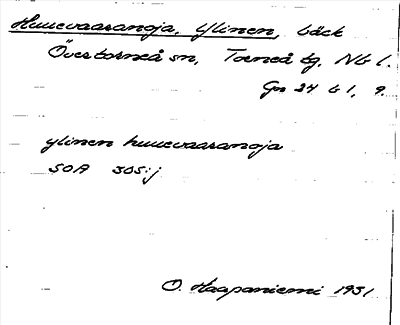 Huuevaaranoja, Ylinen, bäck
Övertorneå sn, Torneå tg, Nb l.
Gs 24 b 1, 9.
ylinen huuevaaranoja
SOA 305:j
O. Haapaniemi 1931